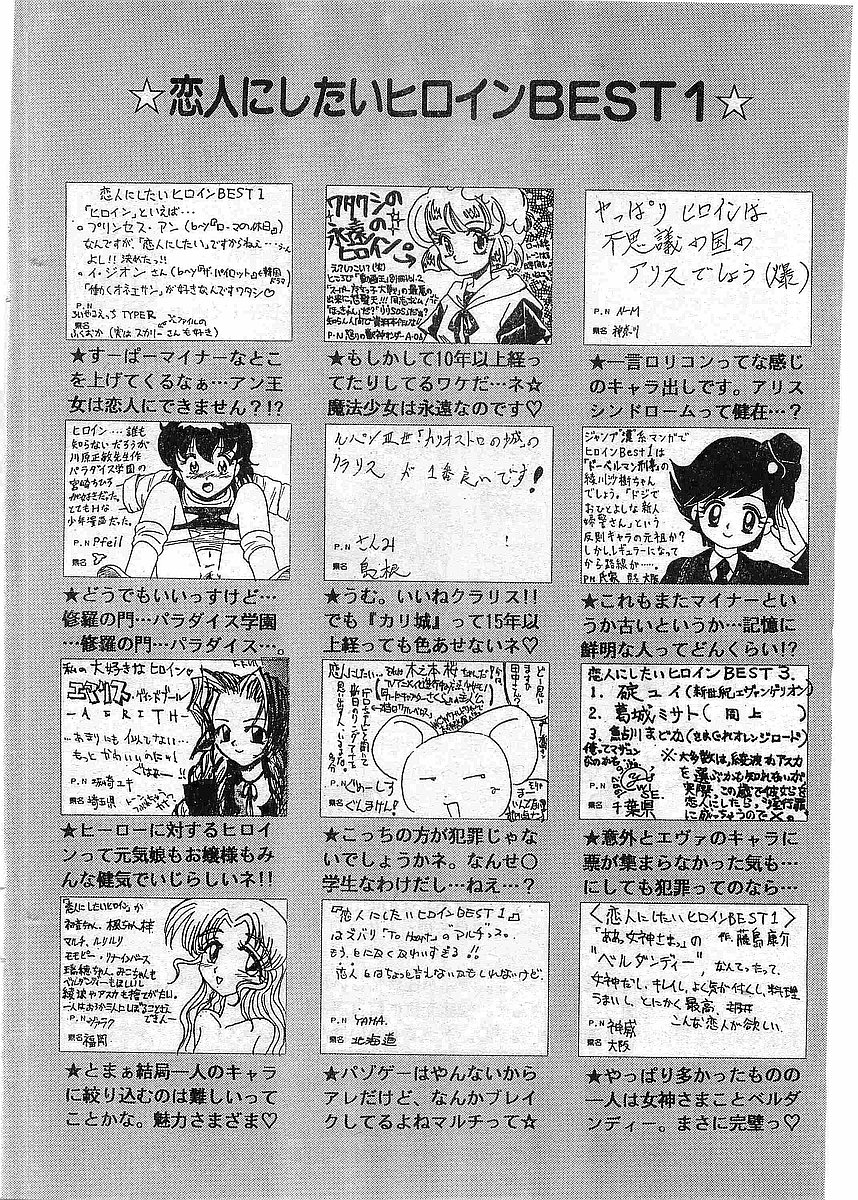 ☆恋人にしたいヒロインBEST1☆
恋人にしたいヒロインBEST1
「ヒロイン」といえば…
○プリンセス・アン(by『ローマの休日』)
なんですが、「恋人にしたい」ですからねぇ…
よし!!決めたっ!!
「働くオネエサン」が好きなんですワタシ♡
P.N
TYPER
県名
ふくおか(実はスカリーさんも好き)
★すーぱーマイナーなとこ
を上げてくるなぁ…アン王
女は恋人にできません?!?
ワタクシの
永遠の
ヒロイン。
★もしかして10年以上経っ
てたりしてるワケだ…ネ☆
魔法少女は永遠なのです♡
やっぱり ヒロインは
不思議の国の
アリスでしょう(爆)
P.N N-M
県名 神奈川
★一言ロリコンってな感じ
のキャラ出しです。アリス
シンドロームって健在…?
ヒロイン…誰も
知らないだろうが
川原正敏先生作
パラダイス学園の
宮崎ちひろ
が好きだった。
とてもHな
少年漫画だった。
P.N Pfeil
県名
★どうでもいいっすけど…
修羅の門…パラダイス学園
…修羅の門…パラダイス…。
ルパン三世「カリオストロの城」の
クラリス が 1番良いです!
P.N さんみ
県名 島根
★うむ。いいねクラリス!!
でも『カリ城』って15年以
上経っても色あせないネ♡
ジャンプ"漢"系マンガで
ヒロインBest1は
「ドーベルマン刑事」の
綾川沙樹ちゃん
でしょう。「ドジで
おひとよしな新人
婦警さん」という
反則キャラの元祖か?
しかし、レギュラーになって
から路線が……。
大阪
★これもまたマイナーとい
うか古いというか…記憶に
鮮明な人ってどんくらい!?
私の大好きなヒロイン♡
エアリス・ゲインズブール
-AERITH-
…あまりにも似てない…
もっとかわいいのにっ!
P.N 坂崎ユキ
県名 埼玉県
★ヒーローに対するヒロイ
ンって元気娘もお嬢様もみ
んな健気でいじらしいネ!!
恋人にしたい…
木之本桜ちゃん
P.N
県名 ぐんまけん!
★こっちの方が犯罪じゃな
いでしょうかネ。なんせ〇
学生なわけだし…ねえ…?
恋人にしたいヒロインBEST3.
1. 碇ユイ(新世紀エヴァンゲリオン)
2. 葛城ミサト( 同上 )
3. 鮎川まどか(きまぐれオレンジロード)
※大多数は、綾波やアスカ
を選ぶかも知れないが
実際、この歳で彼女らを
恋人にしたら、"淫行罪"
に成っちゃうので×。
P.N
県名 千葉県
★意外とエヴァのキャラに
票が集まらなかった気も…
にしても犯罪ってのなら…
「恋人にしたいヒロイン」か
初音ちゃん、楓ちゃん、梓
マルチ、ルリルリ
モモピー・リナ・インバース
瑞穂ちゃん、みこちゃんも
ベルダンディーもほしいし
綾波やアスカも捨てがたい。
P.N
県名 福岡
★とまぁ結局一人のキャラ
に絞り込むのは難しいって
ことかな。魅力さまざま♡
『恋人にしたいヒロインBEST1』
はズバリ「To Heart」の"マルチ"っス。
もう、とにかくかわいすぎる!!
恋人とはちょっと言えないかもしんないけど。
P.N YAMA.
県名 北海道
★パソゲーはやんないから
アレだけど、なんかブレイ
クしてるよねマルチって☆
<恋人にしたいヒロインBEST1>
「ああっ女神さまっ」の 作、藤島康介
"ベルダンディー"、なんてったって、
女神だし、キレイし、よく気が付くし、料理
うまいし、とにかく最高。
こんな恋人が欲しい。
P.N 神威
県名 大阪
★やっぱり多かったものの
一人は女神さまことベルダ
ンディー。まさに完璧っ♡